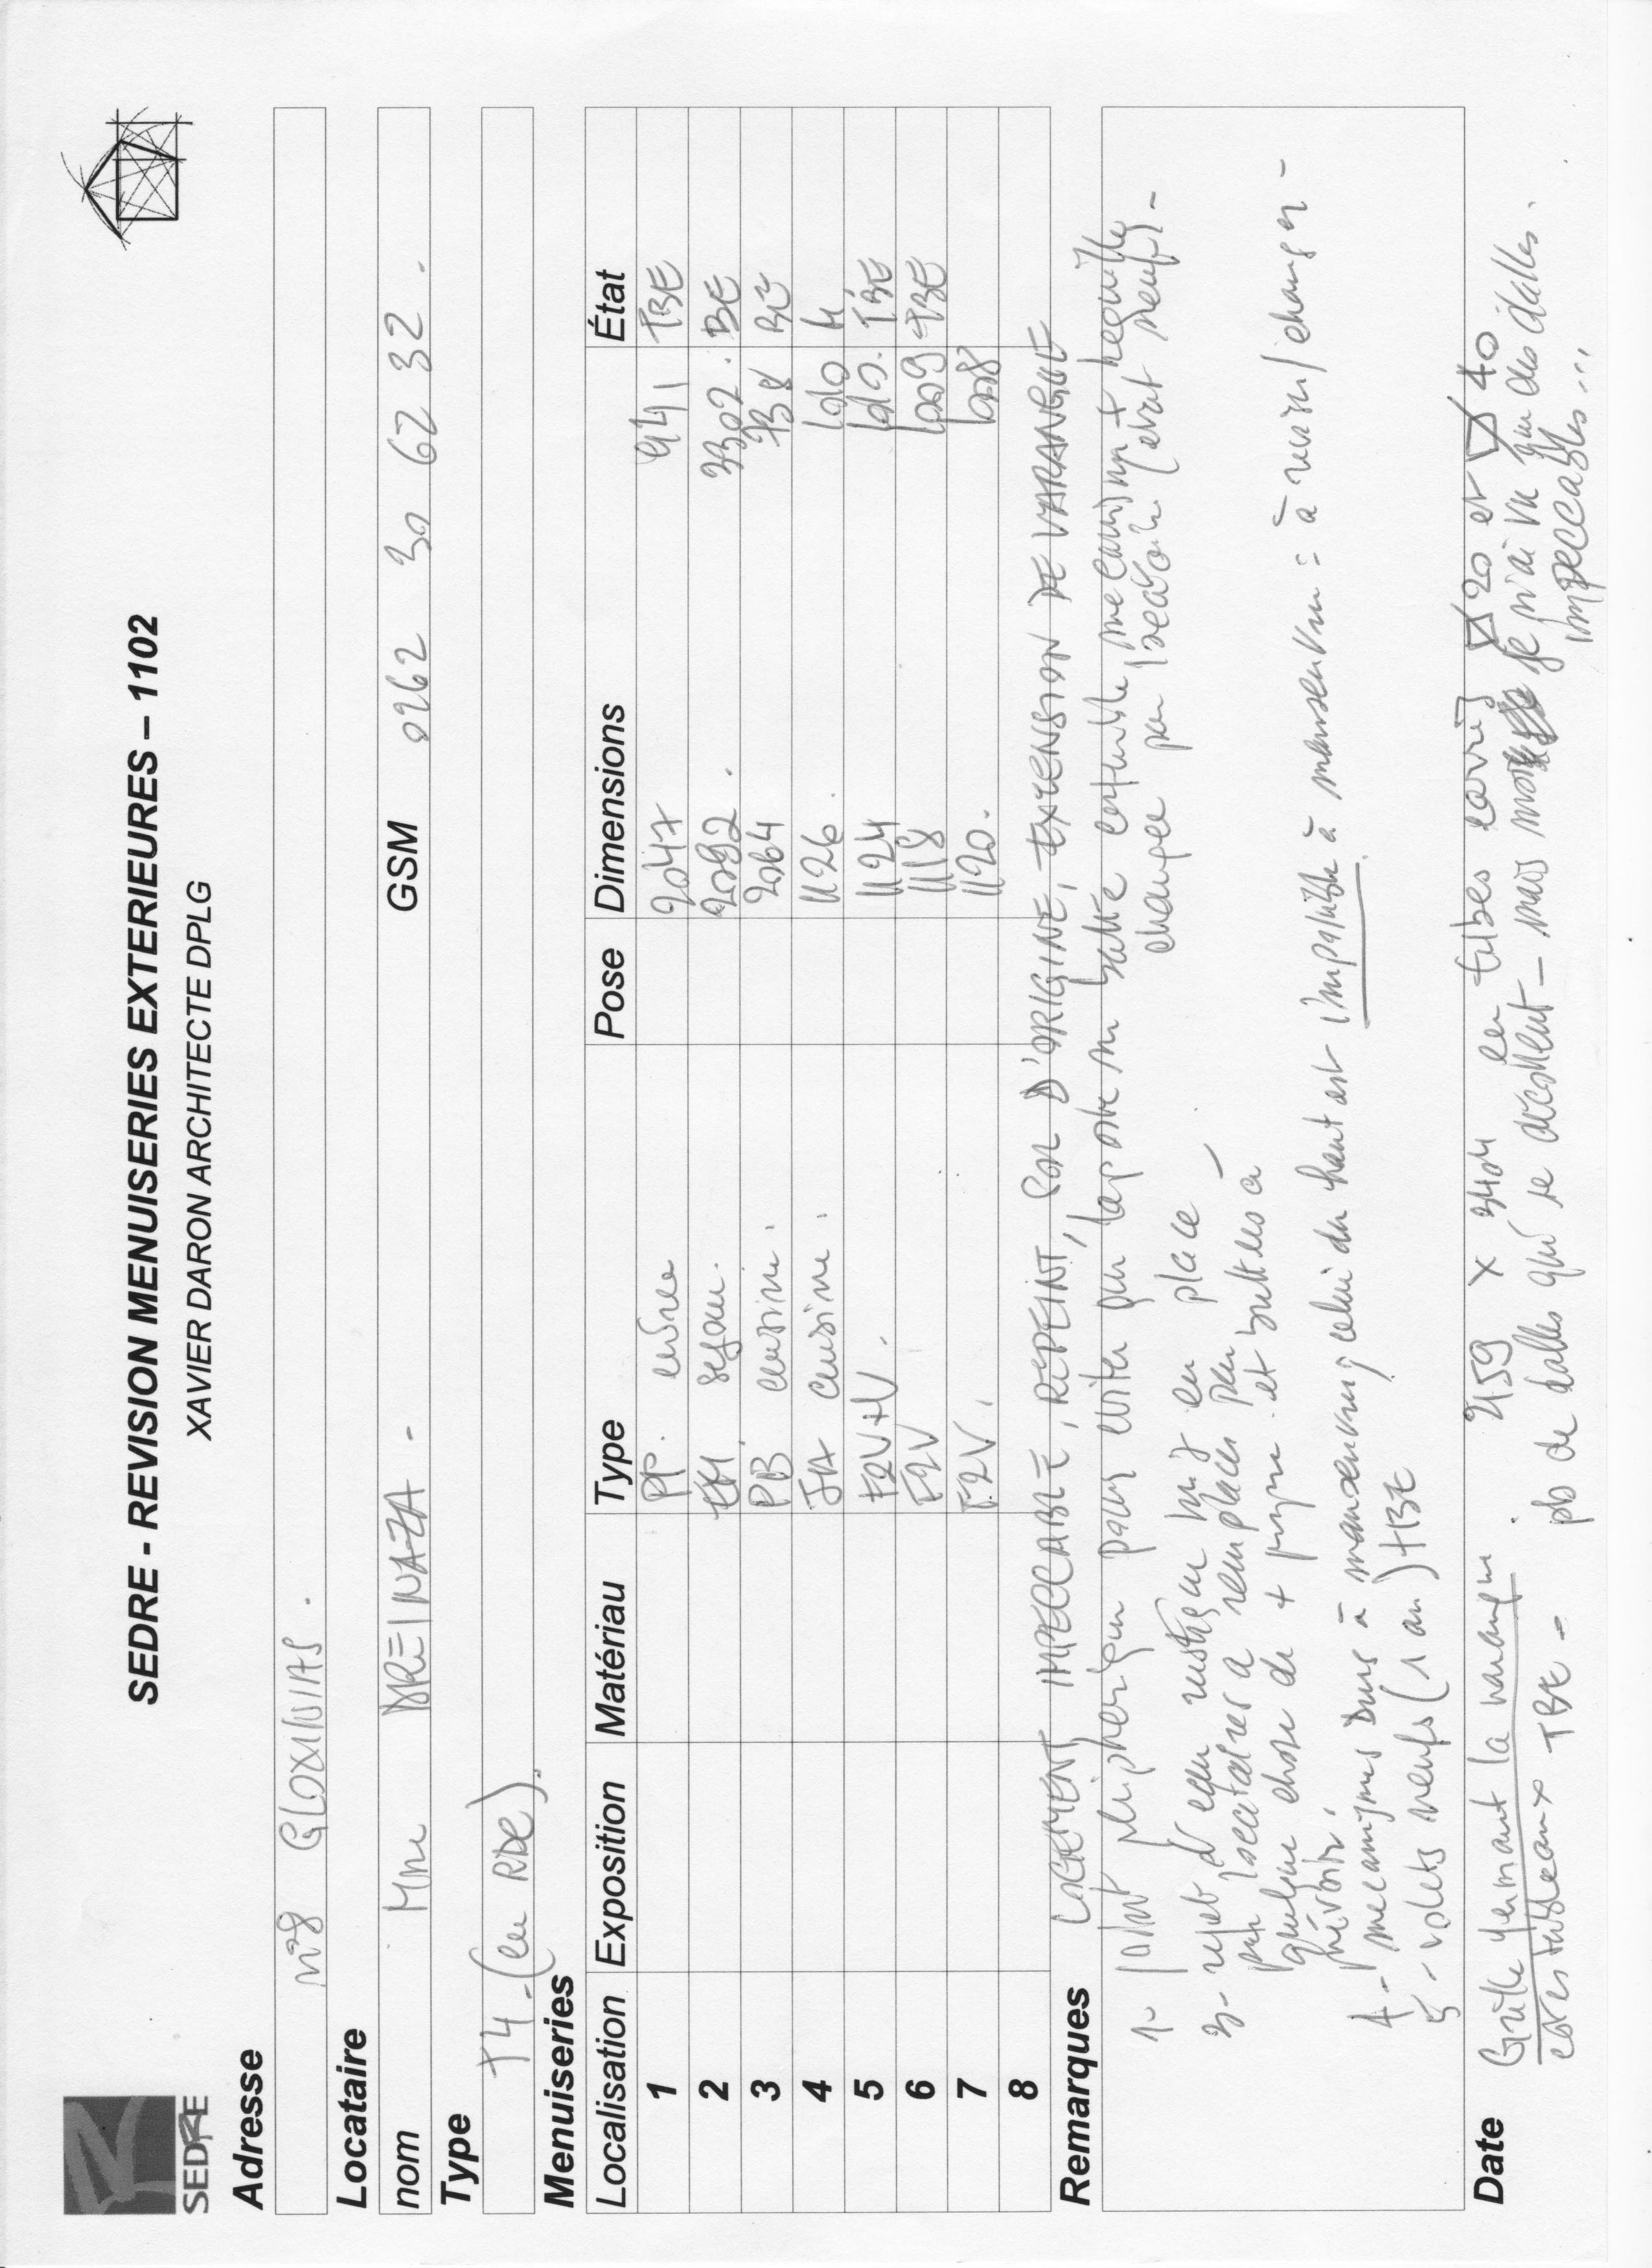 SEDRE
SEDRE - REVISION MENUISERIES EXTERIEURES – 1102
XAVIER DARON ARCHITECTE DPLG
Adresse
n°8 GLOXINIAS.
Locataire
nom Mme DREINAZA - GSM 0262 30 62 32.
Type
T4 - (en RDC).
Menuiseries
Localisation Exposition Matériau Type Pose Dimensions État
1 PP. entrée 2047 941 TBE
2 séjour. 2092. 3302. BE
3 PB cuisine. 2064 738 BE
4 JA cuisine. 1126. 600 M
5 F2V+V. 1124 TBE
6 F2V 1118 1009 TBE
7 F2V. 1120. 1008
8
Remarques LOGEMENT IMPECCABLE, REPEINT, SOL D'ORIGINE, EXTENSION DE VARANGUE
1- joint périphérique pour éviter que la porte ne batte contre le mécanisme + béquille
changée par locataire (état neuf) -
3- rejet d'eau rustique mis en place
par locataires a remplacer par
quelque chose de + propre et butées à
prévoir.
4- mécanismes durs à manoeuvrer, celui du haut est impossible à manoeuvrer = à revoir/changer -
5- volets neufs (1 an) TBE
Date Grille fermant la varangue. 2159 x 3404 en tubes carrés 20 et 40
TBE - pb de dalles qui se décollent - mais je n'ai vu que des dalles.
impeccables...